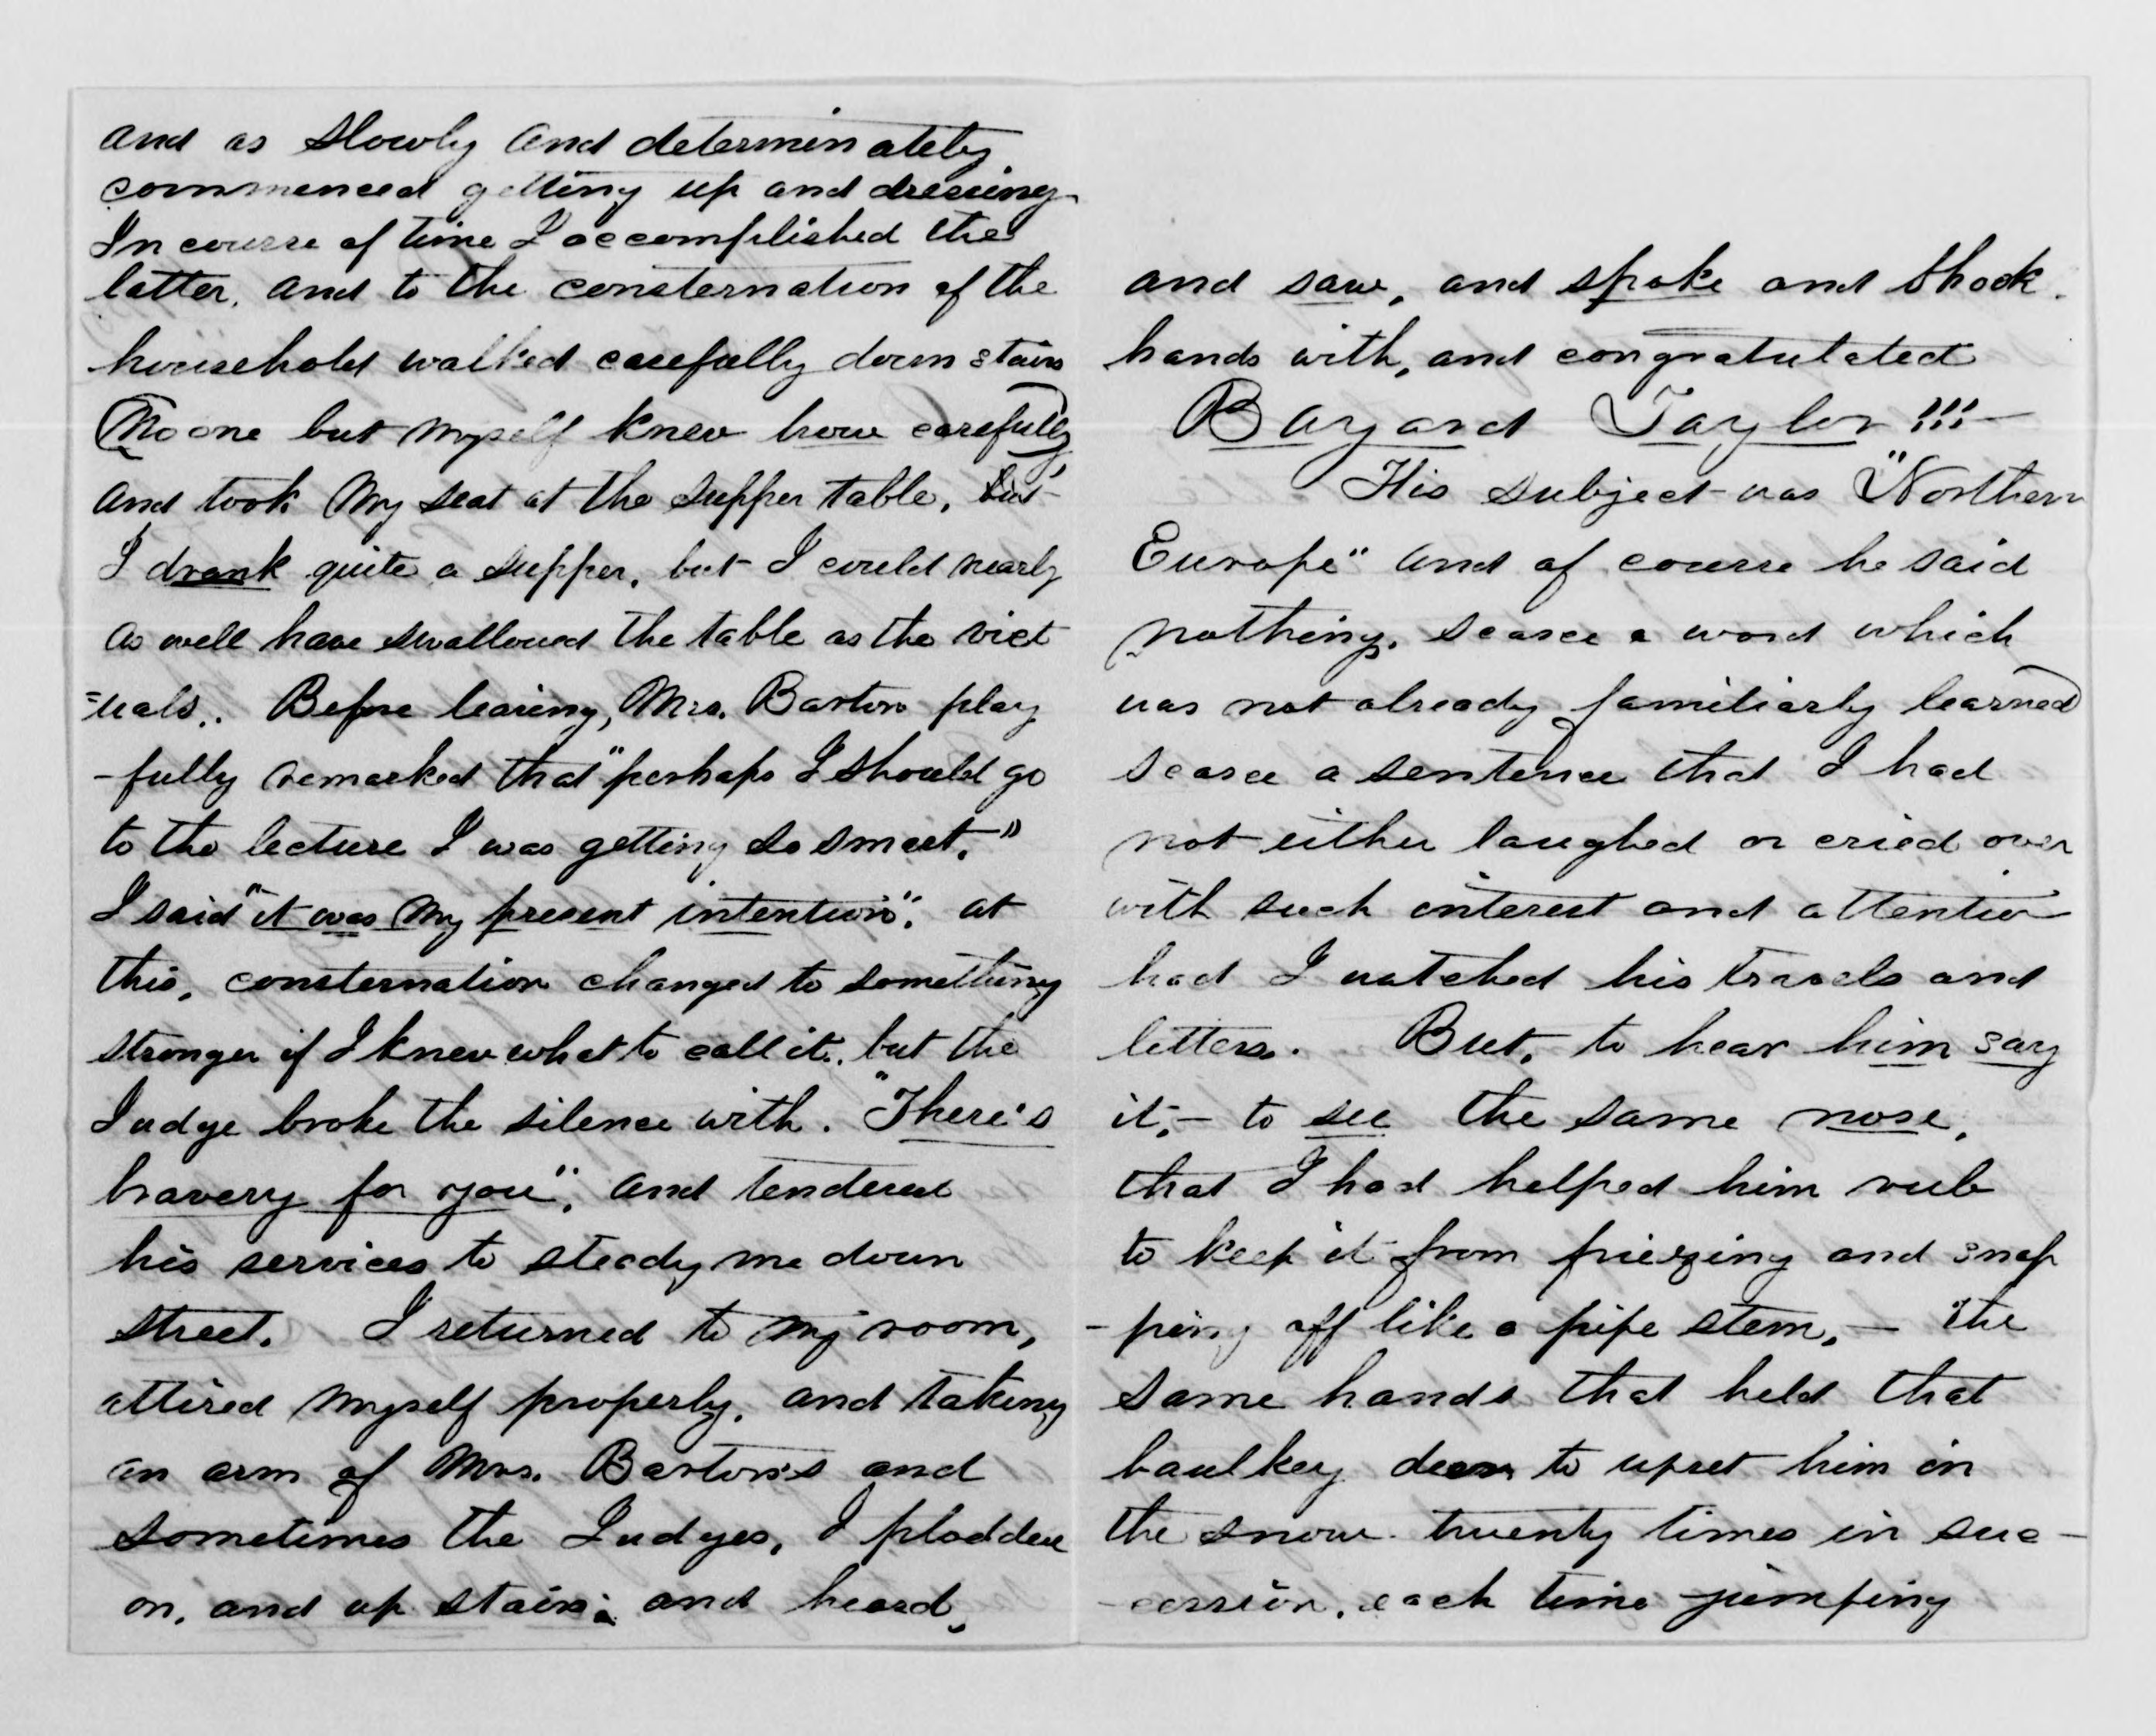 and as slowly and determinately
commenced getting up and dressing
In course of time I accomplished the
latter, and to the consternation of the
household walked carefully down stairs
(No one but myself knew how carefully)
and took my seat at the supper table,
I drank quite a supper, but I could nearly
as well have swallowed the table as the vict
=uals. Before leaving, Mrs. Barton play
-fully remarked that "perhaps I should go
to the lecture I was getting so smart."
I said "it was my present intention". at
this, consternation changed to something
stronger if I knew what to call it. but the
Judge broke the silence with. "There's
bravery for you", and tendered
his services to steady me down
street. I returned to my room,
attired myself properly, and taking
an arm of Mrs. Barton's and
sometimes the Judges, I plodded
on, and up stairs; and heard,
and saw, and spoke and shook
hands with, and congratulated
Bayard Taylor!!!—
His subject was "Northern
Europe" and of course he said
nothing, scarce a word which
was not already familiarly learned
scarce a sentence that I had
not either laughed or cried over
with such interest and attention
had I watched his travels and
letters. But, to hear him say
it,— to see the same nose,
that I had helped him rub
to keep it from friezing and snap
-ping off like a pipe stem,— the
same hands that held that
baulkey deer to upset him in
the snow twenty times in suc-
-cession, each time jumping